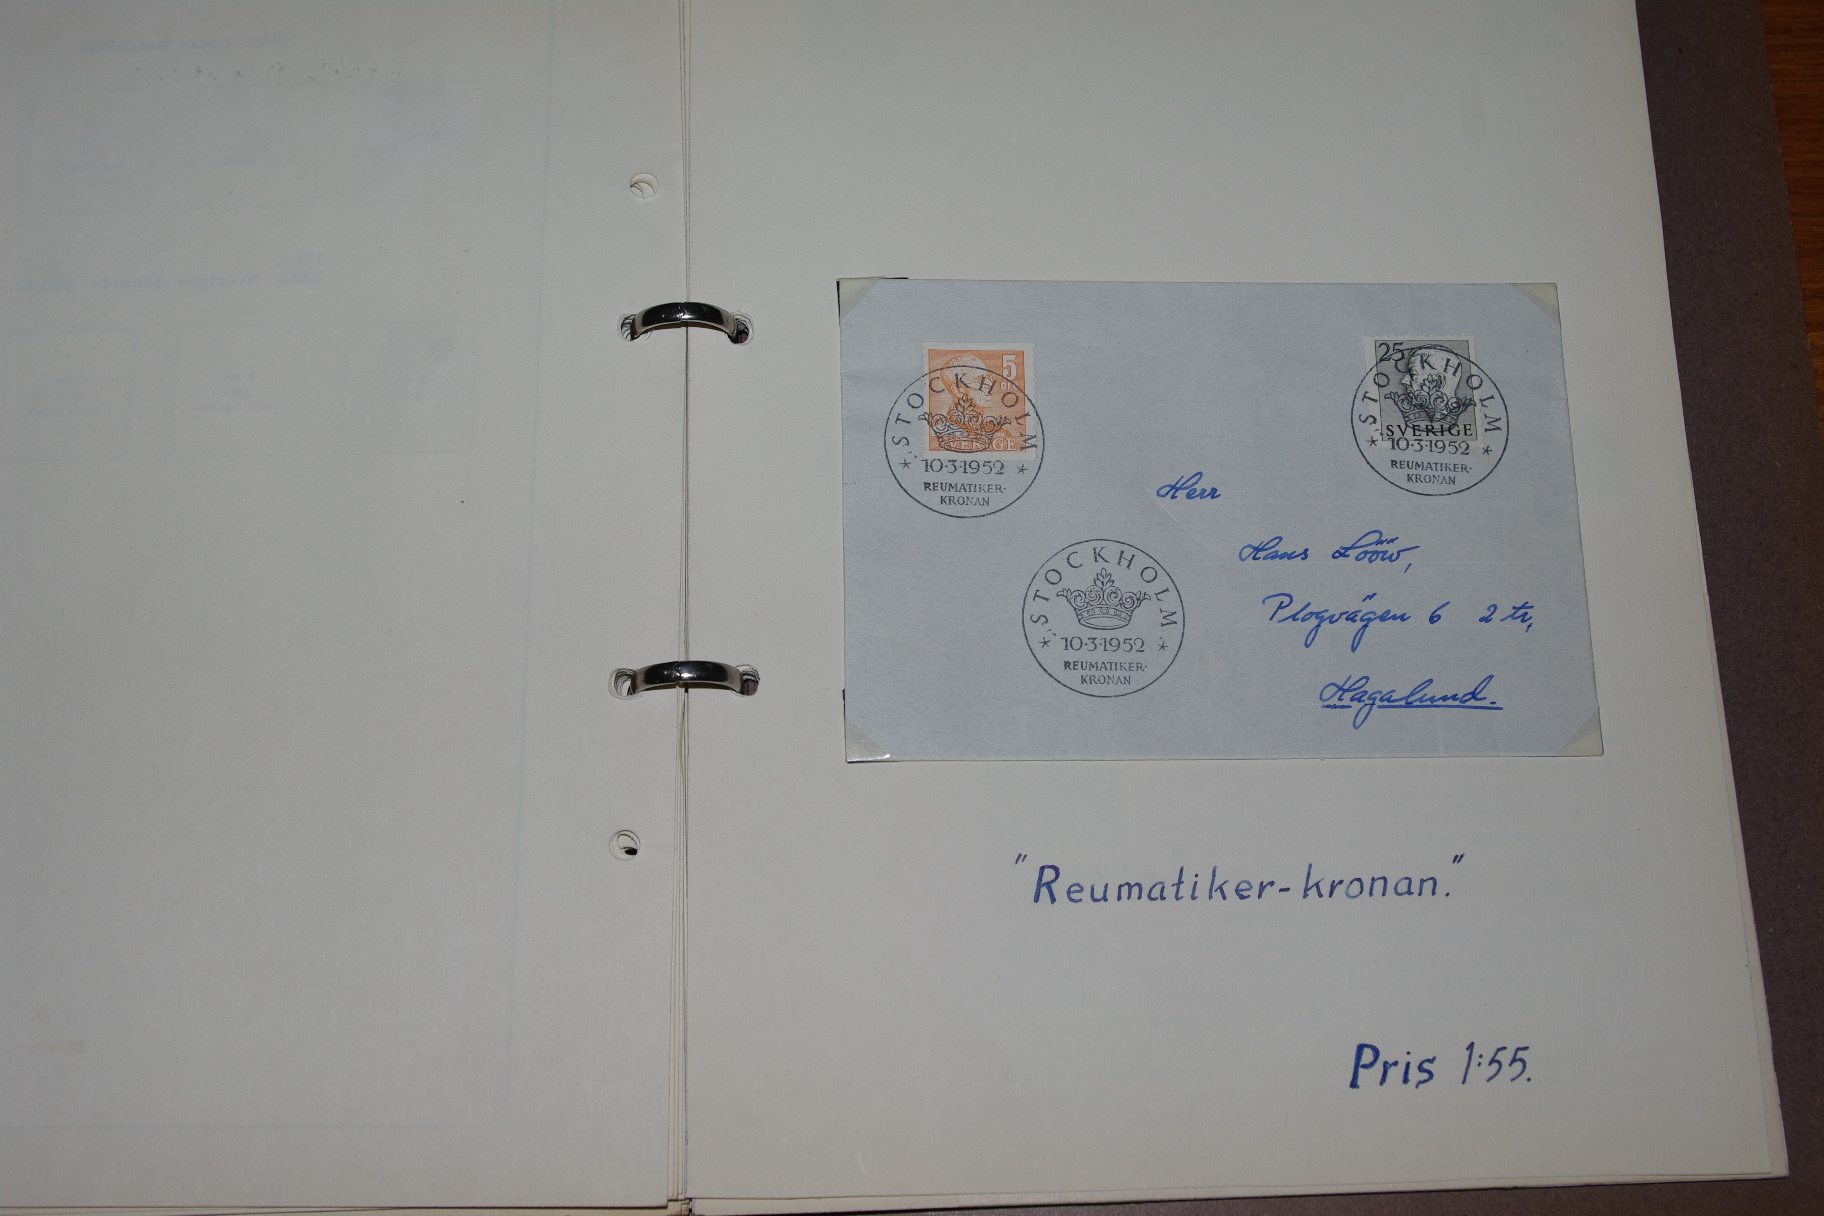 5
SVERIGE
STOCKHOLM
10·3·1952
REUMATIKER-
KRONAN
25
SVERIGE
STOCKHOLM
10·3·1952
REUMATIKER-
KRONAN
STOCKHOLM
10·3·1952
REUMATIKER-
KRONAN
Herr
Hans Lööw,
Plogvägen 6 2 tr,
Hagalund.
"Reumatiker-kronan."
Pris 1:55.